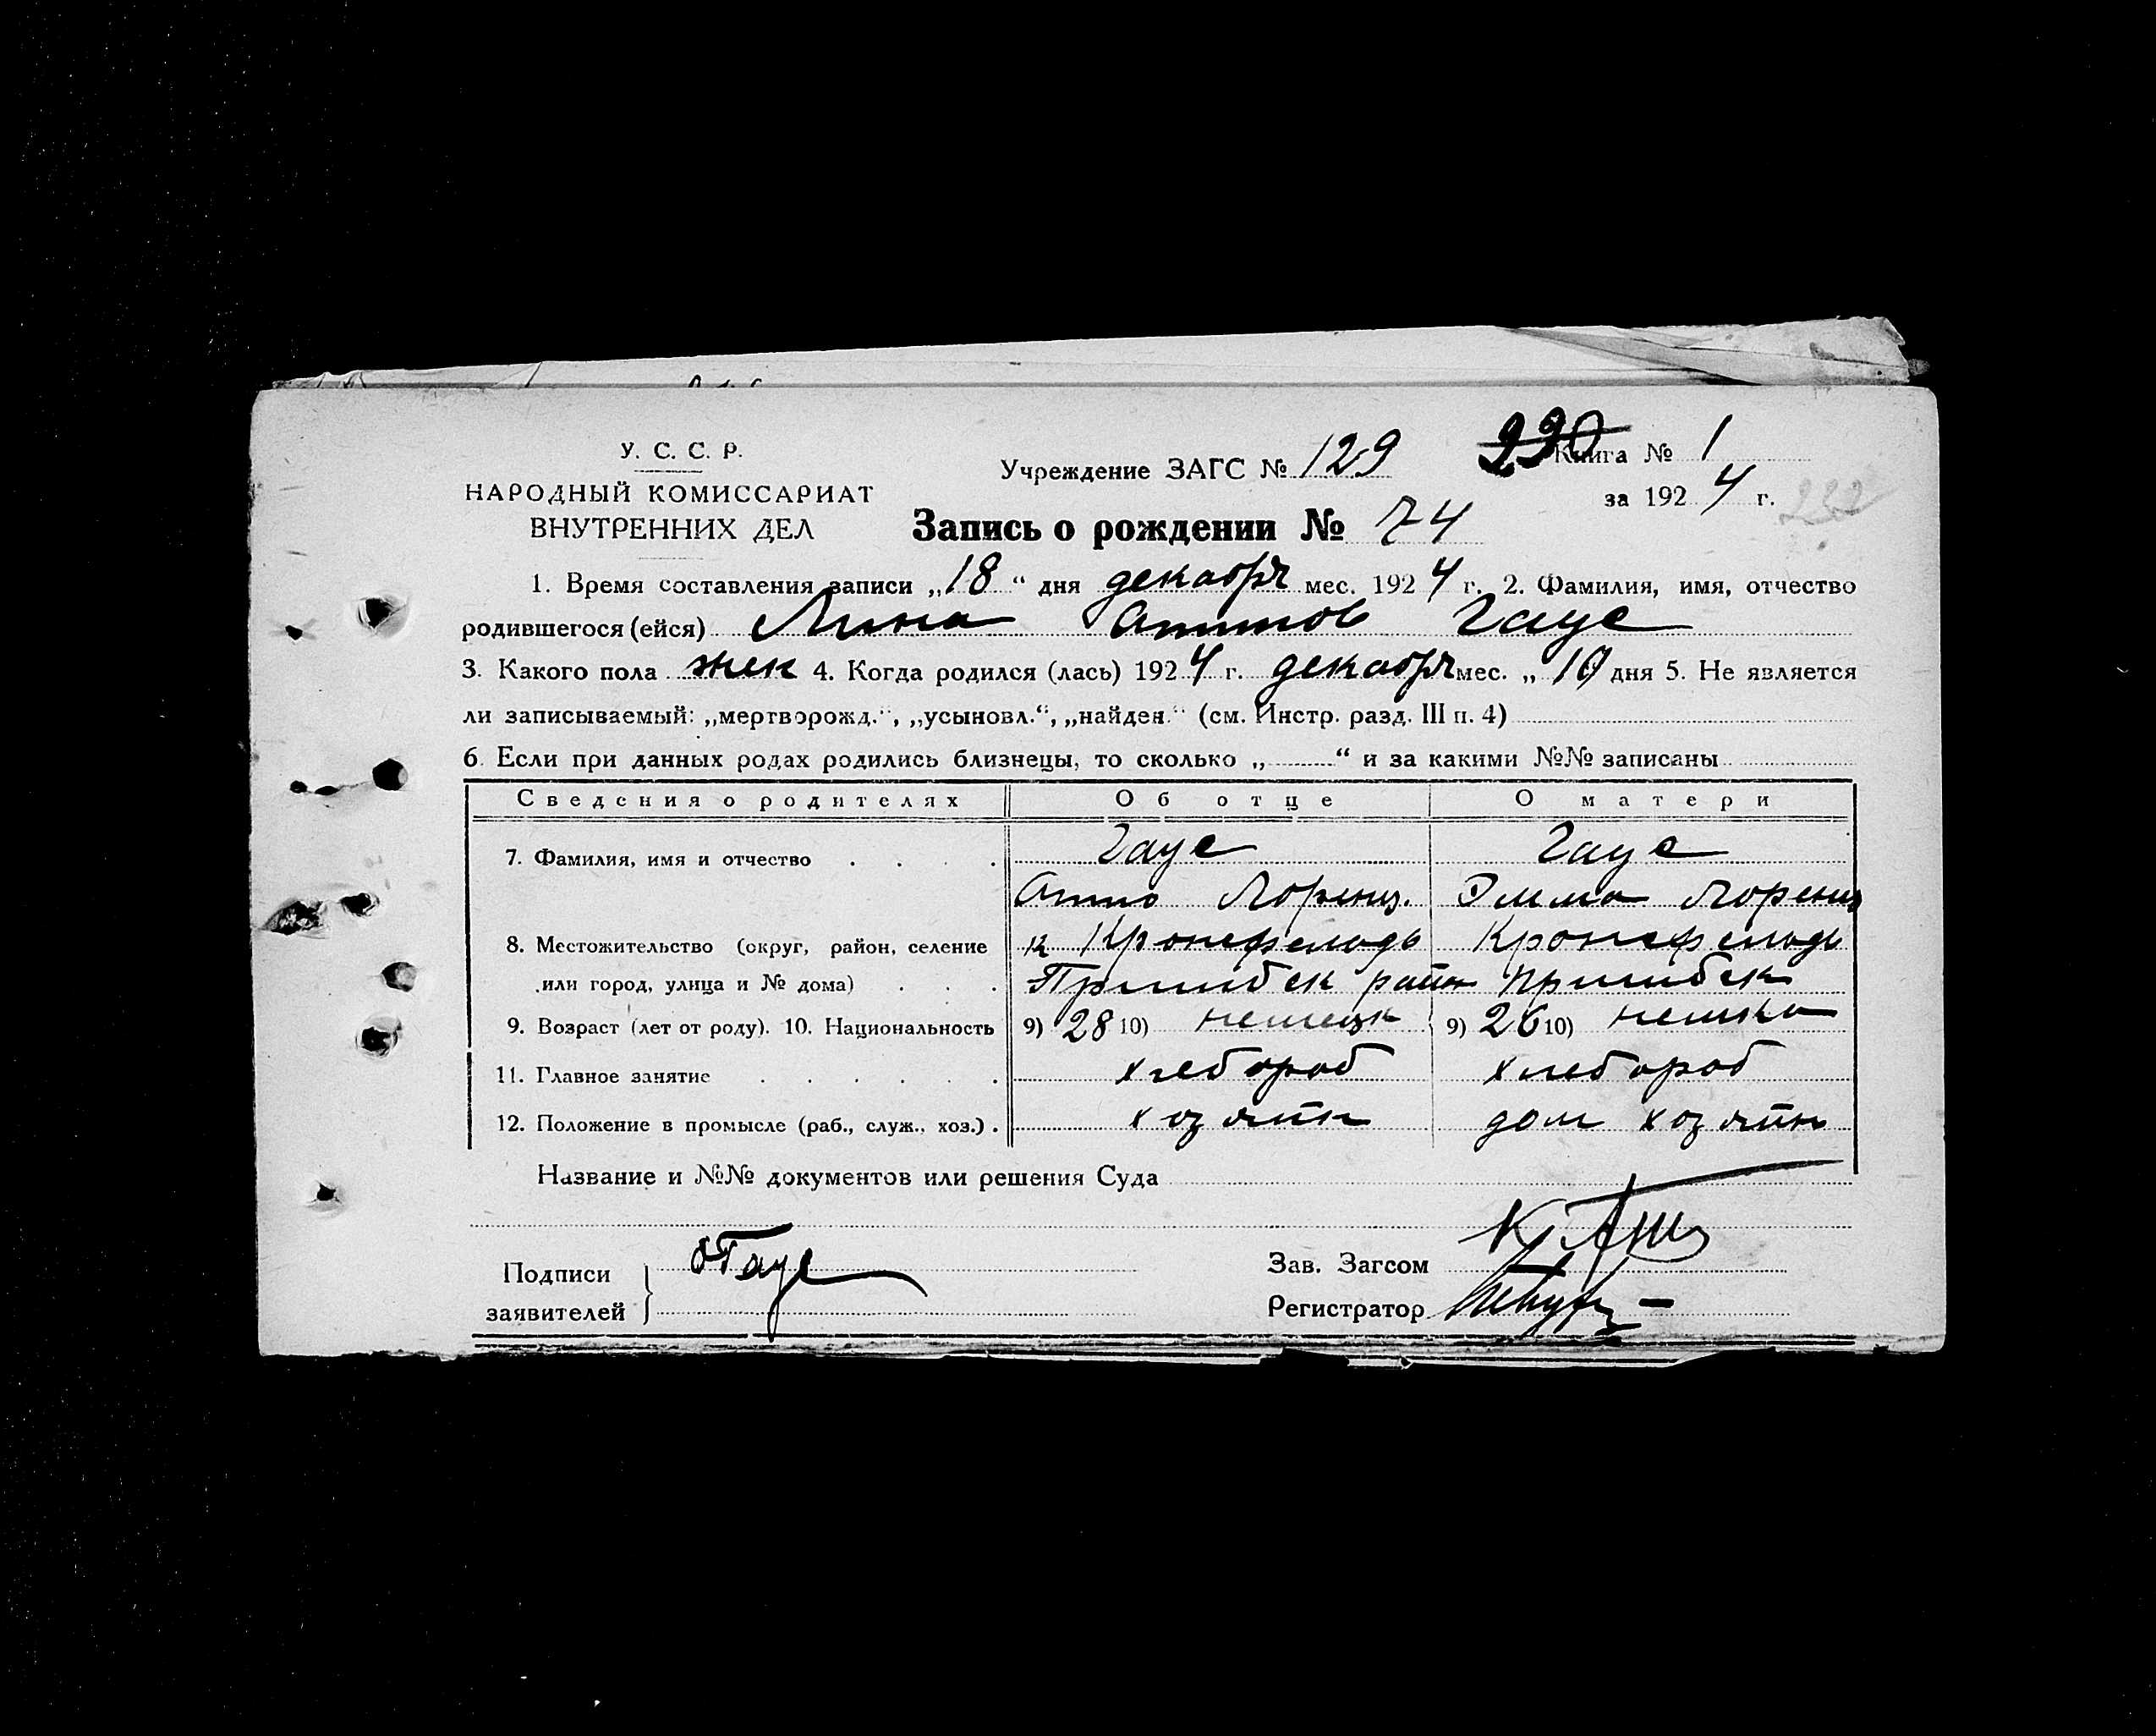 У. С. С. Р.
НАРОДНЫЙ КОМИССАРИАТ
ВНУТРЕННИХ ДЕЛ
Учреждение ЗАГС № 129
230 Книга № 1
за 1924 г. 232
Запись о рождении № 74
1. Время составления записи „18“ дня декабря мес. 1924 г. 2. Фамилия, имя, отчество
родившегося (ейся) Лина Оттов Гаус
3. Какого пола жен 4. Когда родился (лась) 1924 г. декабря мес. „10 дня 5. Не является
ли записываемый: „мертворожд.“, „усыновл.“, „найден.“ (см. Инстр. разд. III п. 4)
6. Если при данных родах родились близнецы, то сколько „ “ и за какими №№ записаны
Сведения о родителях Об отце О матери
7. Фамилия, имя и отчество Гаус Гаус
Отто Лоренц. Эмма Лоренц
8. Местожительство (округ, район, селение Кронсфельдь Кронсфельдь
или город, улица и № дома) Пришибск район Пришибск
9. Возраст (лет от роду). 10. Национальность 9) 28 10) немецк 9) 26 10) немка
11. Главное занятие хлебороб хлебороб
12. Положение в промысле (раб., служ., хоз.) хозяин дом хозяин
Название и №№ документов или решения Суда
Подписи ОГаус
заявителей
Зав. Загсом
Регистратор